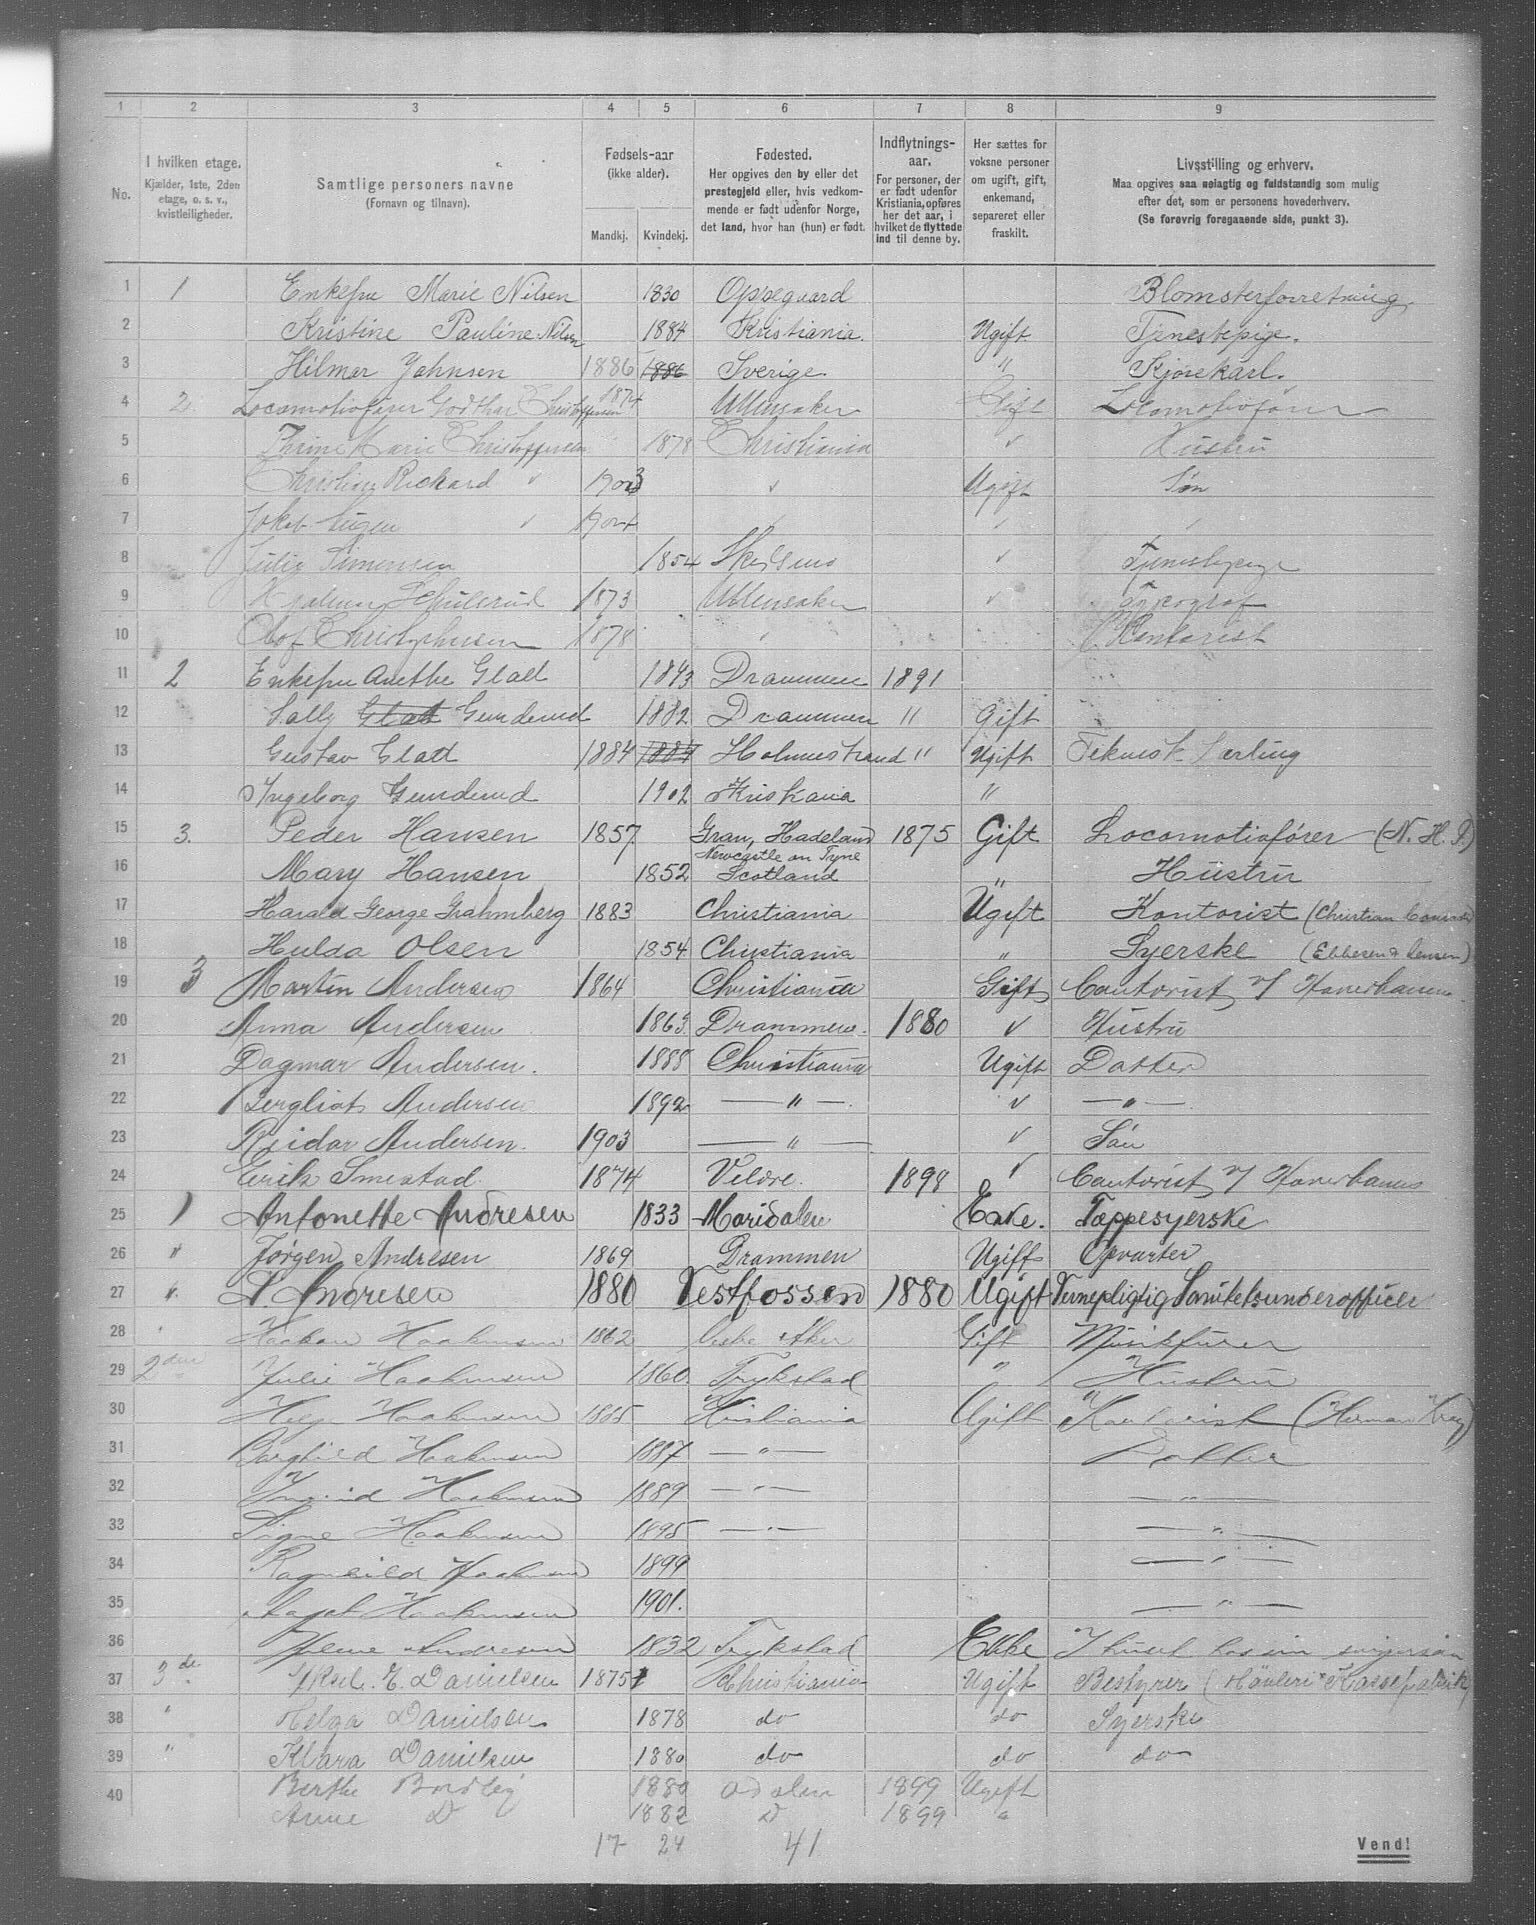 1 2 3 4 5 6 7 8 9
No.
I hvilken etage.
Kjælder, 1ste, 2den
etage, o. s. v.,
kvistleiligheder.
Samtlige personers navne
(Fornavn og tilnavn).
Fødsels-aar
(ikke alder).
Mandkj. Kvindekj.
Fødested.
Her opgives den by eller det
prestegjeld eller, hvis vedkom-
mende er født udenfor Norge,
det land, hvor han (hun) er født.
Indflytnings-
aar.
For personer, der
er født udenfor
Kristiania, opføres
her det aar, i
hvilket de flyttede
ind til denne by.
Her sættes for
voksne personer
om ugift, gift,
enkemand,
separeret eller
fraskilt.
Livsstilling og erhverv.
Maa opgives saa nøiagtig og fuldstændig som mulig
efter det, som er personens hovederhverv.
(Se forøvrig foregaaende side, punkt 3).
1 1 Enkefru Marie Nilsen 1830 Oppegaard Blomsterforretning
2 Kristine Pauline Nilsen 1884 Kristiania. Ugift Tjenestepige.
3 Hilmar Johnsen 1886 1886 Sverige " Kjørekarl.
4 2 Locomotivfører Godthar Christoffersen 1874 Ullensaker Gift Locomotivfører
5 Thrine Marie Christoffersen 1878 Christiania " Hustru
6 Christian Rickard " 1903 " Ugift Søn
7 Jokob Eugen " 1904 " " "
8 Julie Simonsen 1854 " Tjenestepige
9 1873 Ullensaker " Typograf
10 Olof Christophersen 1878 " Kontorist
11 2 Enkefru Anethe Glatt 1843 Drammen 1891
12 Sally Glatt Gundersrud 1882 Drammen " Gift
13 Gustav Glatt 1884 1884 Holmestrand " Ugift Teknisk Lærling
14 Ingeborg 1902 Kristiania "
15 3. Peder Hansen 1857 Gran, Hadeland 1875 Gift Locomotivfører (N. H. J)
16 Mary Hansen 1852 Newcastle on Tyne Scotland " Hustru
17 Harald George Grahmberg 1883 Christiania Ugift Kontorist (Christian
18 Hulda Olsen 1854 Christiania " Syerske (Ebbesen & Jensen)
19 3 Martin Andersen 1864 Christiania Gift Cantorist v/ Havnekassen
20 Anna Andersen 1863. Drammen. 1880 " Hustru
21 Dagmar Andersen. 1888 Christiania Ugift Datter
22 Bergliot Andersen 1892 — " —. " — " —
23 Reidar Andersen. 1903 — " — " Søn
24 Erik Smestad 1874 Veldre. 1898 " Cantorist v/ Havnekassen
25 1 Antonette Andresen 1833 Maridalen Enke. Tæppesyerske
26 " Jørgen Andresen 1869 Drammen Ugift Opvarter
27 " A. Andresen 1880 Vestfossen 1880 Ugift Vernepligtig Sanitetsunderofficer
28 " Haakon Haakensen 1862 Vestre Aker Gift
29 2den Julie Haakensen 1860. Trykstad " Hustru
30 Helge Haakensen 1885 Kristiania Ugift Kontorist (Herman Krag)
31 Borghild Haakensen 1887 — " — Datter
32 Ingrid Haakensen 1889 — " — — " —
33 Signe Haakensen 1895 — " — — " —
34 Ragnhild Haakensen 1899 — " —
35 Aagot Haakensen 1901. — " —
36 Andresen 1832 Trykstad Enke I huset hos sin svigersøn
37 3de Axel. E. Danielsen 1875 Christiania Ugift Bestyrer (Høvleri & Kassefabrik)
38 " Helga Danielsen 1878 do do Syerske
39 " Klara Danielsen 1880 do do do
40 Berthe 1880 Odalen 1899 Ugift
Anne D 1882 D 1899 "
17 24 41
Vend!